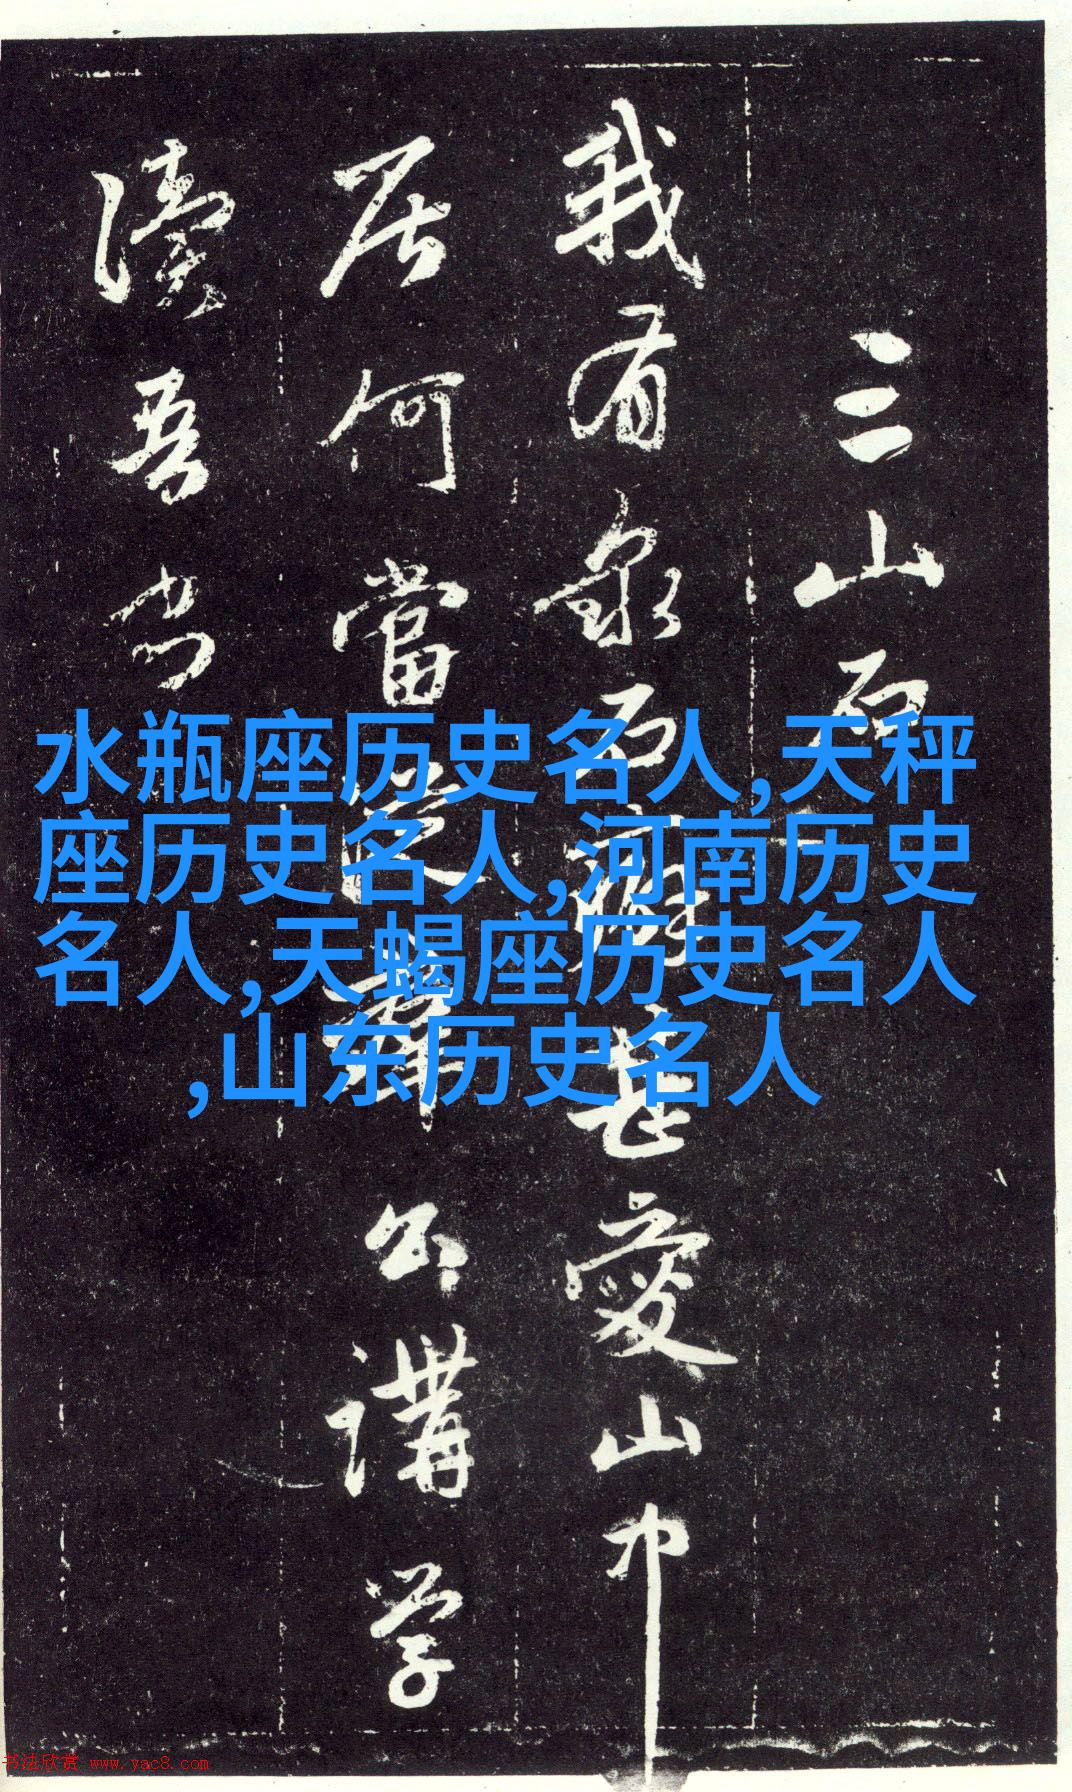 三山石
我有泉石癖甚愛山中
居何當公講学
讀吾书
水瓶座历史名人,天秤
座历史名人,河南历史
名人,天蝎座历史名人
,山东历史名人
书法欣赏 www.yac8.com